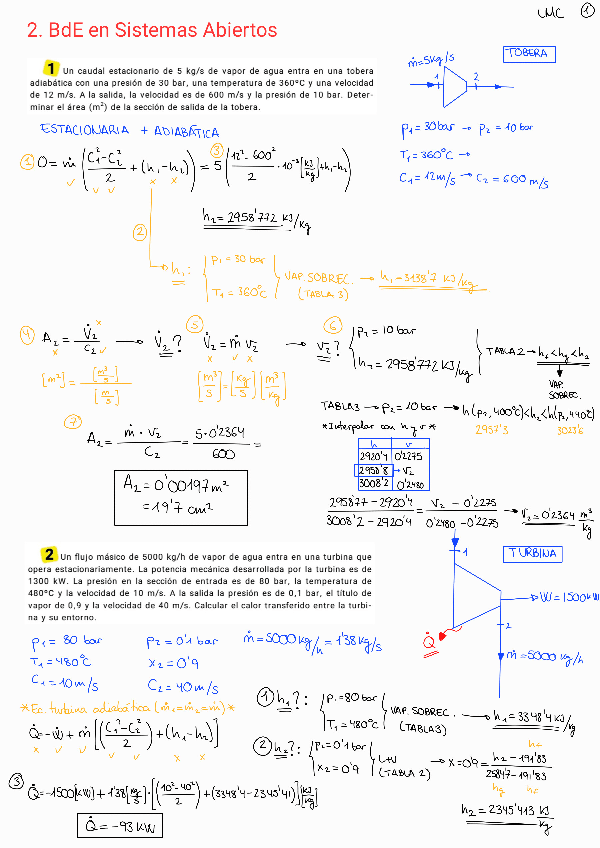 LMC 1
2. BdE en Sistemas Abiertos
1 Un caudal estacionario de 5 kg/s de vapor de agua entra en una tobera
adiabática con una presión de 30 bar, una temperatura de 360ºC y una velocidad
de 12 m/s. A la salida, la velocidad es de 600 m/s y la presión de 10 bar. Deter-
minar el área (m²) de la sección de salida de la tobera.
ṁ=5kg/s TOBERA
1 2
ESTACIONARIA + ADIABÁTICA
P1=30bar → P2=10bar
T1=360ºC →
C1=12m/s → C2=600m/s
① 0=ṁ((C1²-C2²)/2+(h1-h2)) = 5(③(12²-600²)/2·10⁻³[kJ/kg]+h1-h2)
h2=2958'772 kJ/kg
②
h1: { P1=30bar T1=360ºC } VAP. SOBREC. (TABLA 3) → h1=3138'7 kJ/kg
④ A2=V̇2/C2 → V̇2?
[m²]=[m³/s]/[m/s]
⑤ V̇2=ṁ v2 → v2?
[m³/s]=[kg/s][m³/kg]
⑥ { P2=10bar h2=2958'772 kJ/kg } TABLA 2 → hf<hg<h2
VAP. SOBREC.
TABLA 3 → P2=10bar → h(P2,400ºC)<h2<h(P2,440ºC)
2957'3 3023'6
*Interpolar con h y v*
h v
2920'4 0'2275
2958'8 → v2
3008'2 0'2480
(2958'77-2920'4)/(3008'2-2920'4)=(v2-0'2275)/(0'2480-0'2275) → v2=0'2364 m³/kg
⑦ A2=(ṁ·v2)/C2=(5·0'2364)/600=
A2=0'00197m²
=19'7 cm²
2 Un flujo másico de 5000 kg/h de vapor de agua entra en una turbina que
opera estacionariamente. La potencia mecánica desarrollada por la turbina es de
1300 kW. La presión en la sección de entrada es de 80 bar, la temperatura de
480ºC y la velocidad de 10 m/s. A la salida la presión es de 0,1 bar, el título de
vapor de 0,9 y la velocidad de 40 m/s. Calcular el calor transferido entre la turbi-
na y su entorno.
TURBINA
1
Ẇ=1500kW
2
Q̇
ṁ=5000 kg/h
P1=80bar P2=0'1bar ṁ=5000kg/h=1'38kg/s
T1=480ºC X2=0'9
C1=10m/s C2=40m/s
*Ec. turbina adiabática (ṁ1=ṁ2=ṁ)*
Q̇=-Ẇ+ṁ[((C1²-C2²)/2)+(h1-h2)]
① h1?: { P1=80bar T1=480ºC } VAP. SOBREC. (TABLA 3) → h1=3348'4 kJ/kg
② h2?: { P2=0'1bar X2=0'9 } L+V (TABLA 2) → X=0'9=(h2-191'83)/(2584'7-191'83)
hf
hg hf
h2=2345'413 kJ/kg
③ Q̇=-1500[kW]+1'38[kg/s]·[((10²-40²)/2)+(3348'4-2345'41)][kJ/kg]
Q̇=-93kW